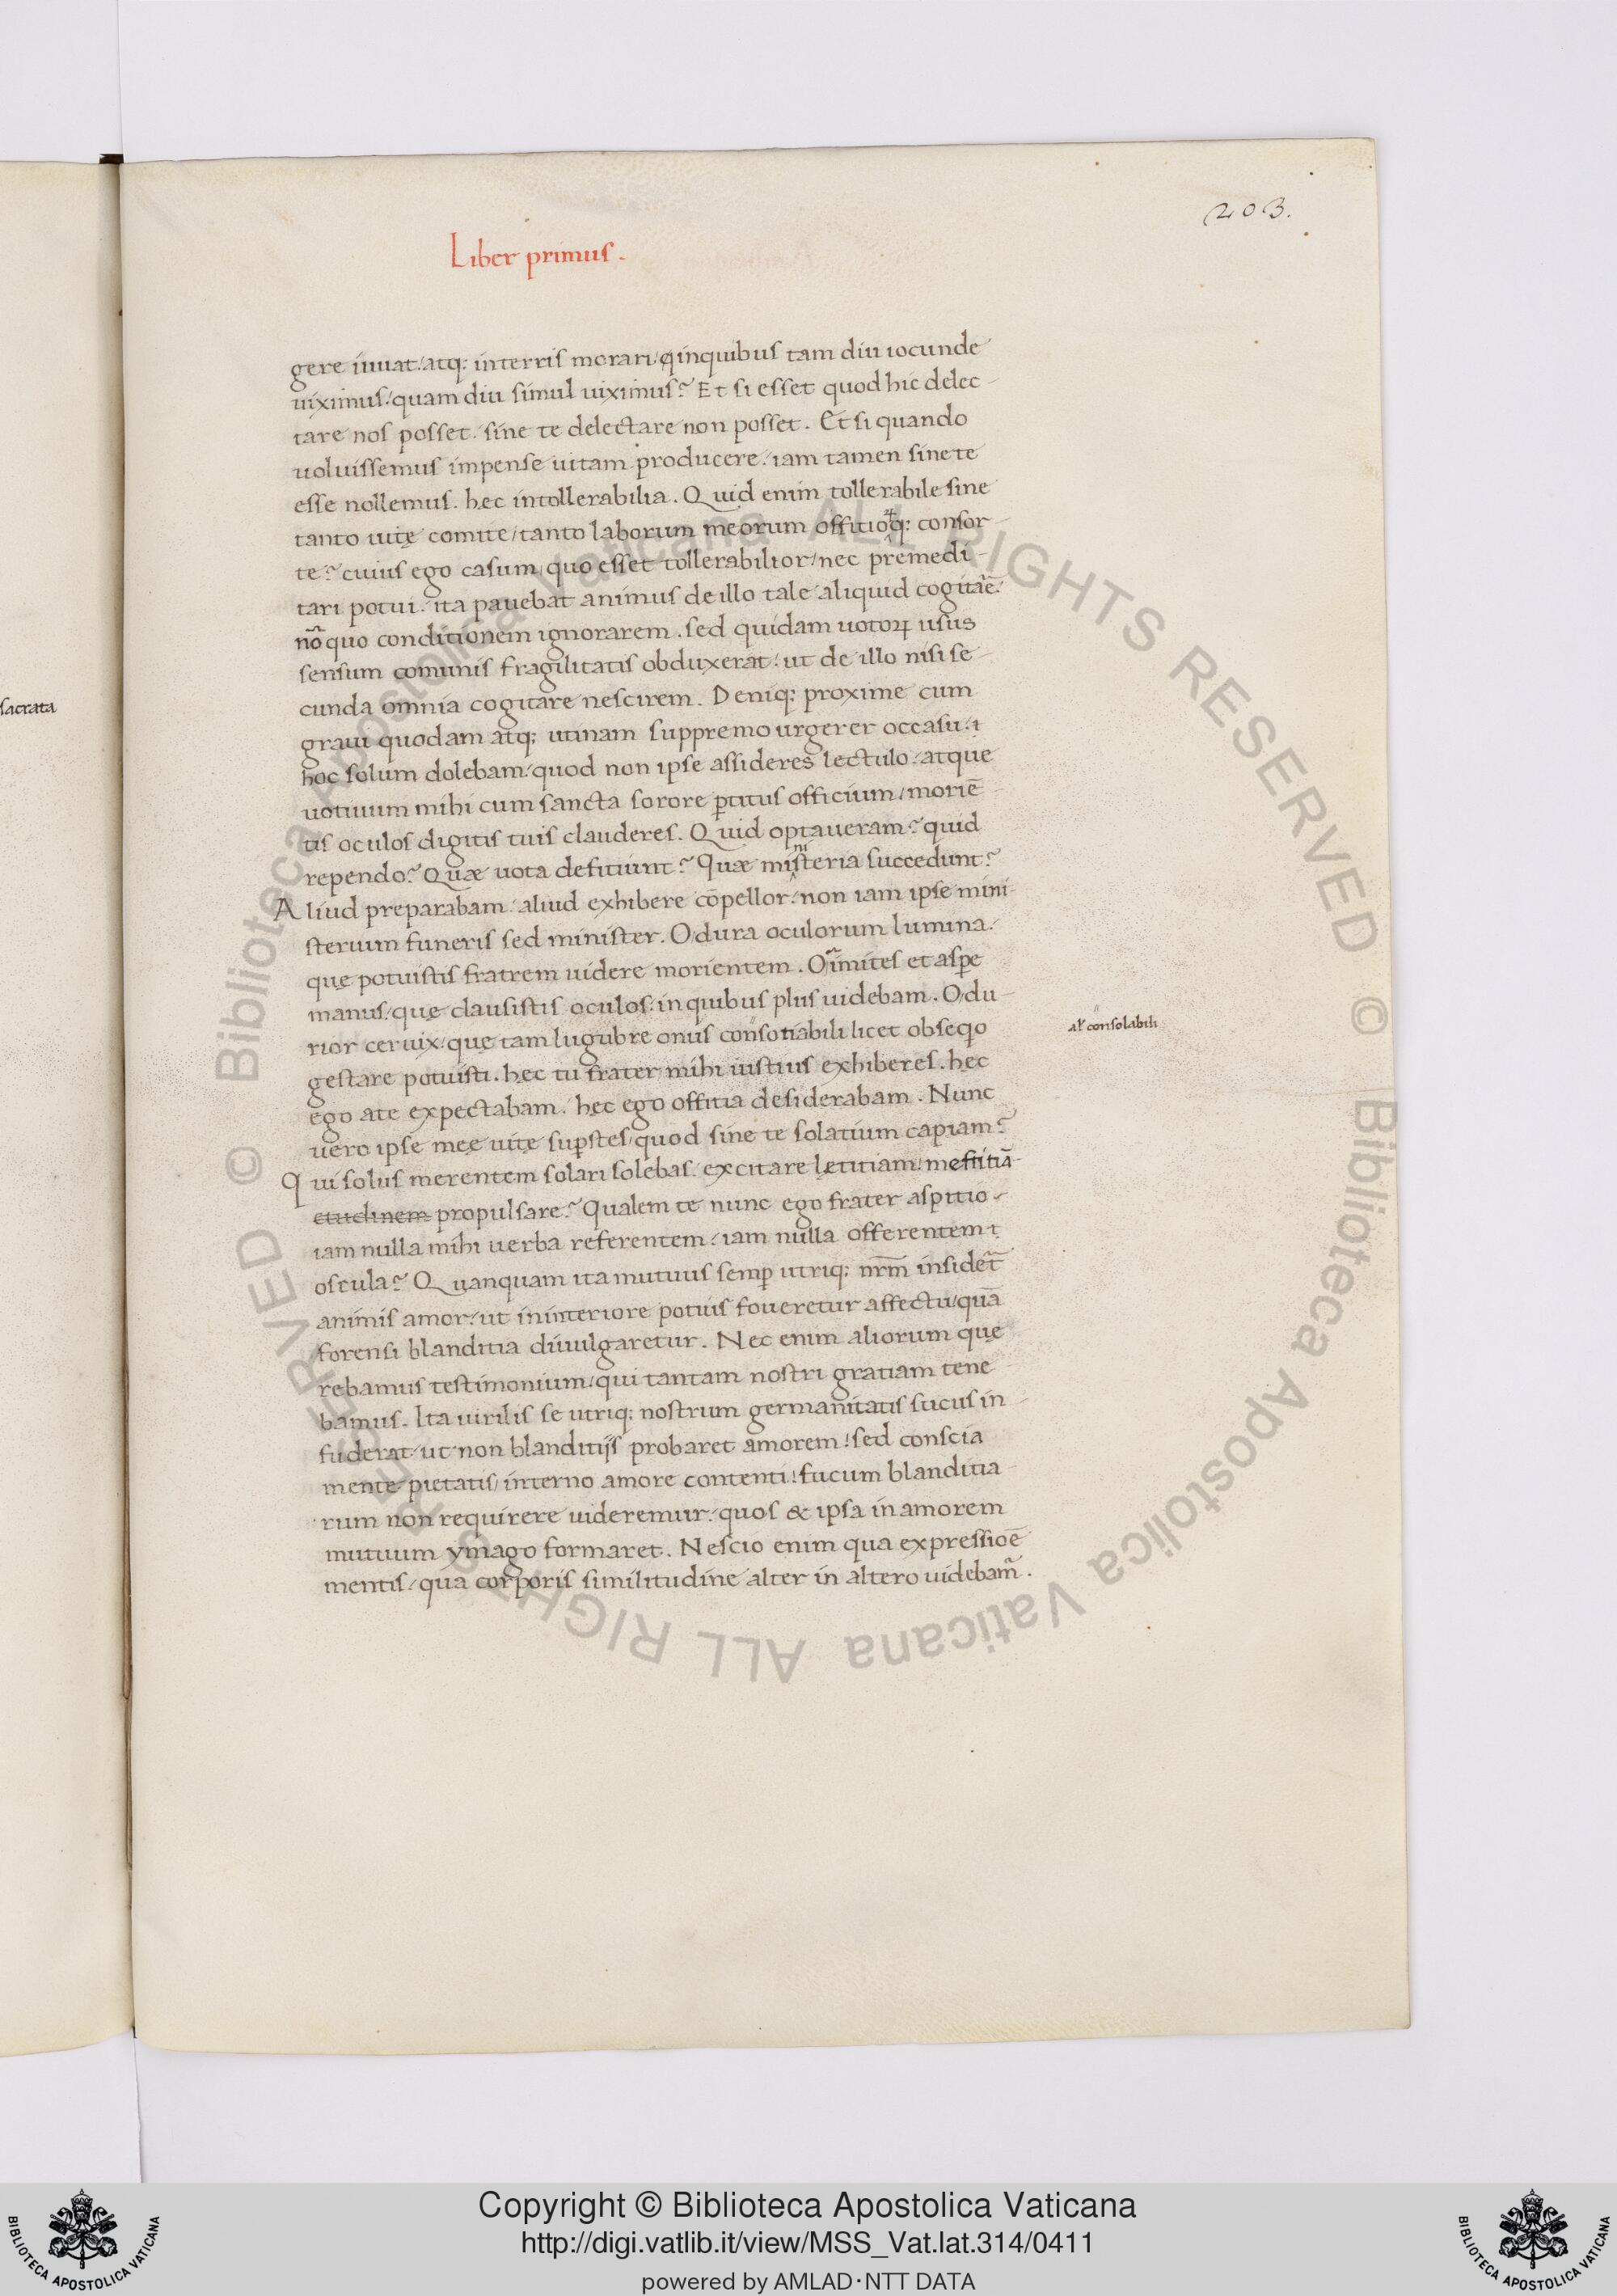 203.
Liber primus.
gere iuuat atq; interris morari q inquibus tam diu iocunde
uiximus quam diu simul uiximus? Et si esset quod hic delec-
tare nos posset sine te delectare non posset. Et si quando
uoluissemus impense uitam producere iam tamen sine te
esse nollemus. hec intollerabilia. Quid enim tollerabile sine
tanto uitę comite tanto laborum meorum offitioq; consor-
te? cuius ego casum quo esset tollerabilior nec premedi-
tari potui. ita pauebat animus de illo tale aliquid cogitāē.
nō quo conditionem ignorarem. sed quidam uotoꝝ usus
sensum comunis fragilitatis obduxerat ut de illo nisi se-
cunda omnia cogitare nescirem. Deniq; proxime cum
graui quodam atq; utinam suppremo urgerer occasu
hoc solum dolebam quod non ipse assideres lectulo atque
uotiuum mihi cum sancta sorore ꝑtitus officium moriē-
tis oculos digitis tuis clauderes. Quid optaueram? quid
rependo? Quæ uota defitiunt? Quæ ministeria succedunt?
Aliud preparabam aliud exhibere cōpellor non iam ipse mini-
sterium funeris sed minister. O dura oculorum lumina
quę potuistis fratrem uidere morientem. O imites et asꝑe
manus quę clausistis oculos in quibus plus uidebam. O du-
rior ceruix quę tam lugubre onus consotiabili licet obseqo
al' consolabili
gestare potuisti. hęc tu frater mihi iustius exhiberes. hęc
ego ate expectabam. hęc ego offitia desiderabam. Nunc
uero ipse meę uitę suꝑstes quod sine te solatium capiam?
Qui solus merentem solari solebas excitare lętitiam mestitiā
etudinem propulsare? Qualem te nunc ego frater aspitio
iam nulla mihi uerba referentem iam nulla offerentem
oscula? Quanquam ita mutuus semꝑ utriq; nrm̄ insidēt
animis amor ut ininteriore potuis foueretur affectu quā
forensi blanditia diuulgaretur. Nec enim aliorum quę
rebamus testimonium qui tantam nostri gratiam tene
bamus. Ita uirilis se utriq; nostrum germanitatis sucus in-
fuderat ut non blanditijs probaret amorem sed conscia
mente pietatis interno amore contenti fucum blanditia-
rum non requirere uideremur quos & ipsa in amorem
mutuum ymago formaret. Nescio enim qua expressioē
mentis qua corporis similitudine alter in altero uidebam̄.
sacrata
Copyright © Biblioteca Apostolica Vaticana
http://digi.vatlib.it/view/MSS_Vat.lat.314/0411
powered by AMLAD·NTT DATA
BIBLIOTECA APOSTOLICA VATICANA
BIBLIOTECA APOSTOLICA VATICANA
© Biblioteca Apostolica Vaticana ALL RIGHTS RESERVED © Biblioteca Apostolica Vaticana ALL RIGHTS RESERVED